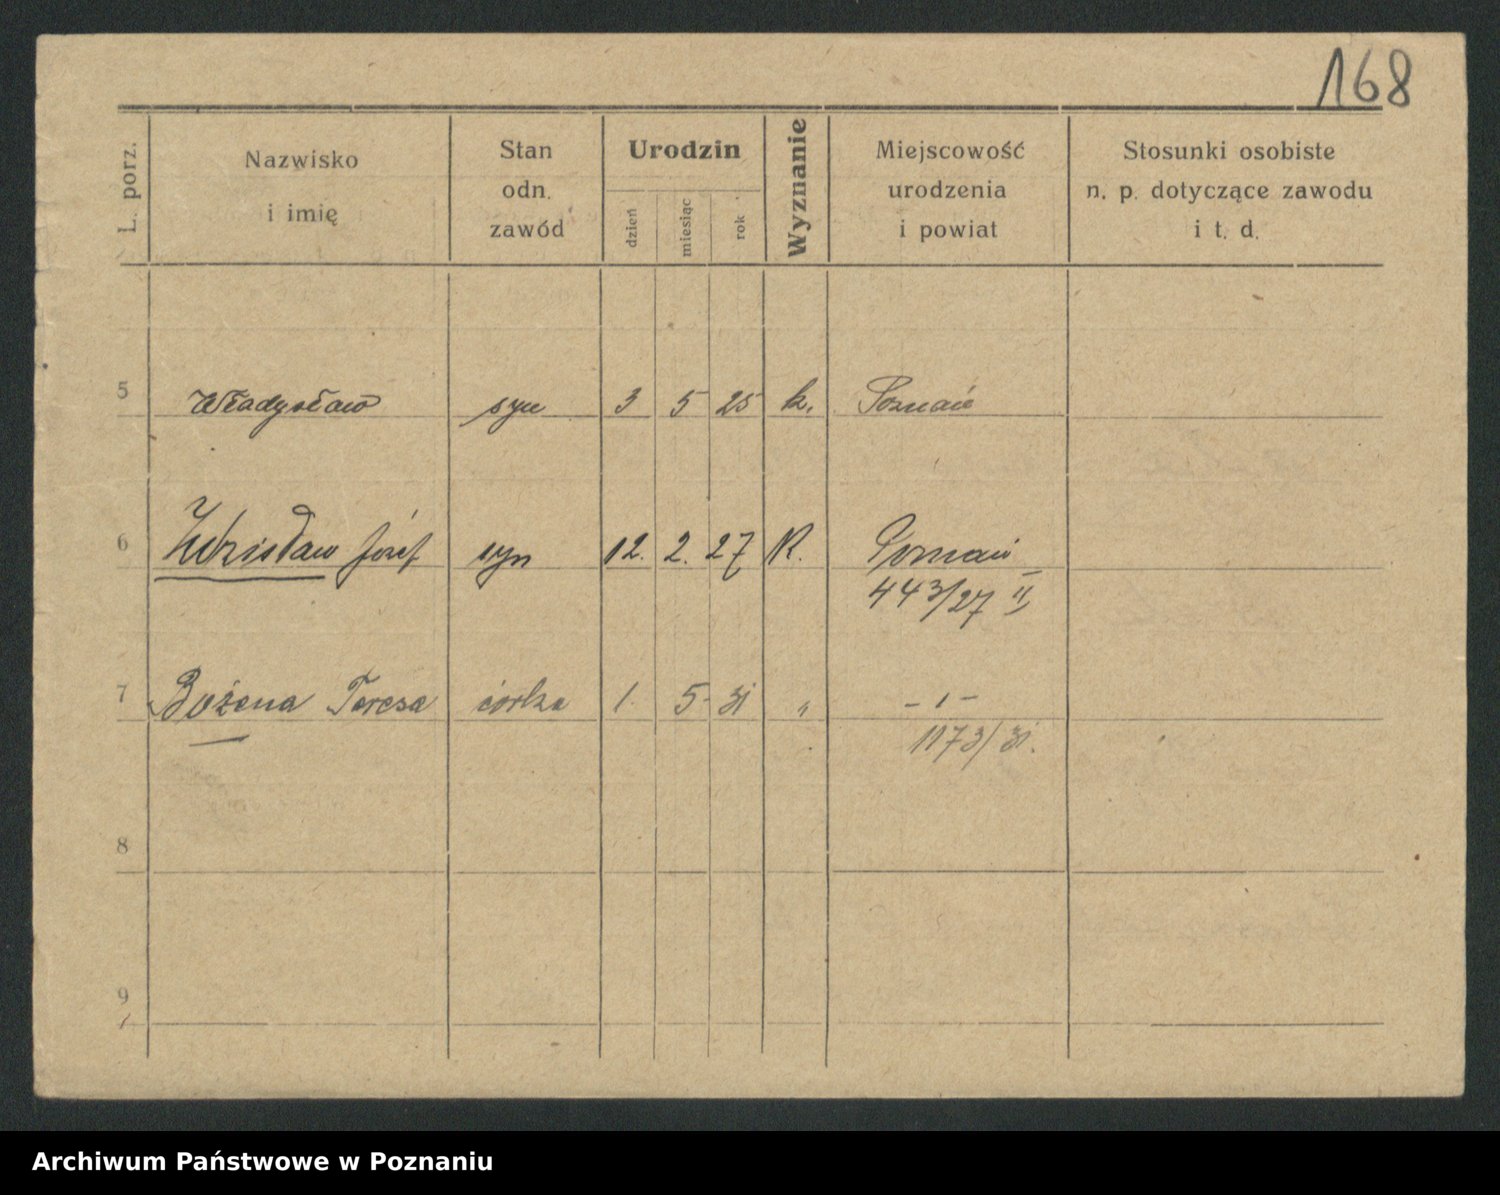 168
L. porz.
Nazwisko
i imię
Stan
odn.
zawód
Urodzin
dzień
miesiąc
rok
Wyznanie
Miejscowość
urodzenia
i powiat
Stosunki osobiste
n. p. dotyczące zawodu
i t. d.
5 Władysław syn 3 5 25 k. Poznań
6 Zdzisław Józef syn 12. 2. 27 K. Poznań
443/27 II
7 Bożena Teresa córka 1. 5 31 " - " -
1173/31.
8
9
Archiwum Państwowe w Poznaniu